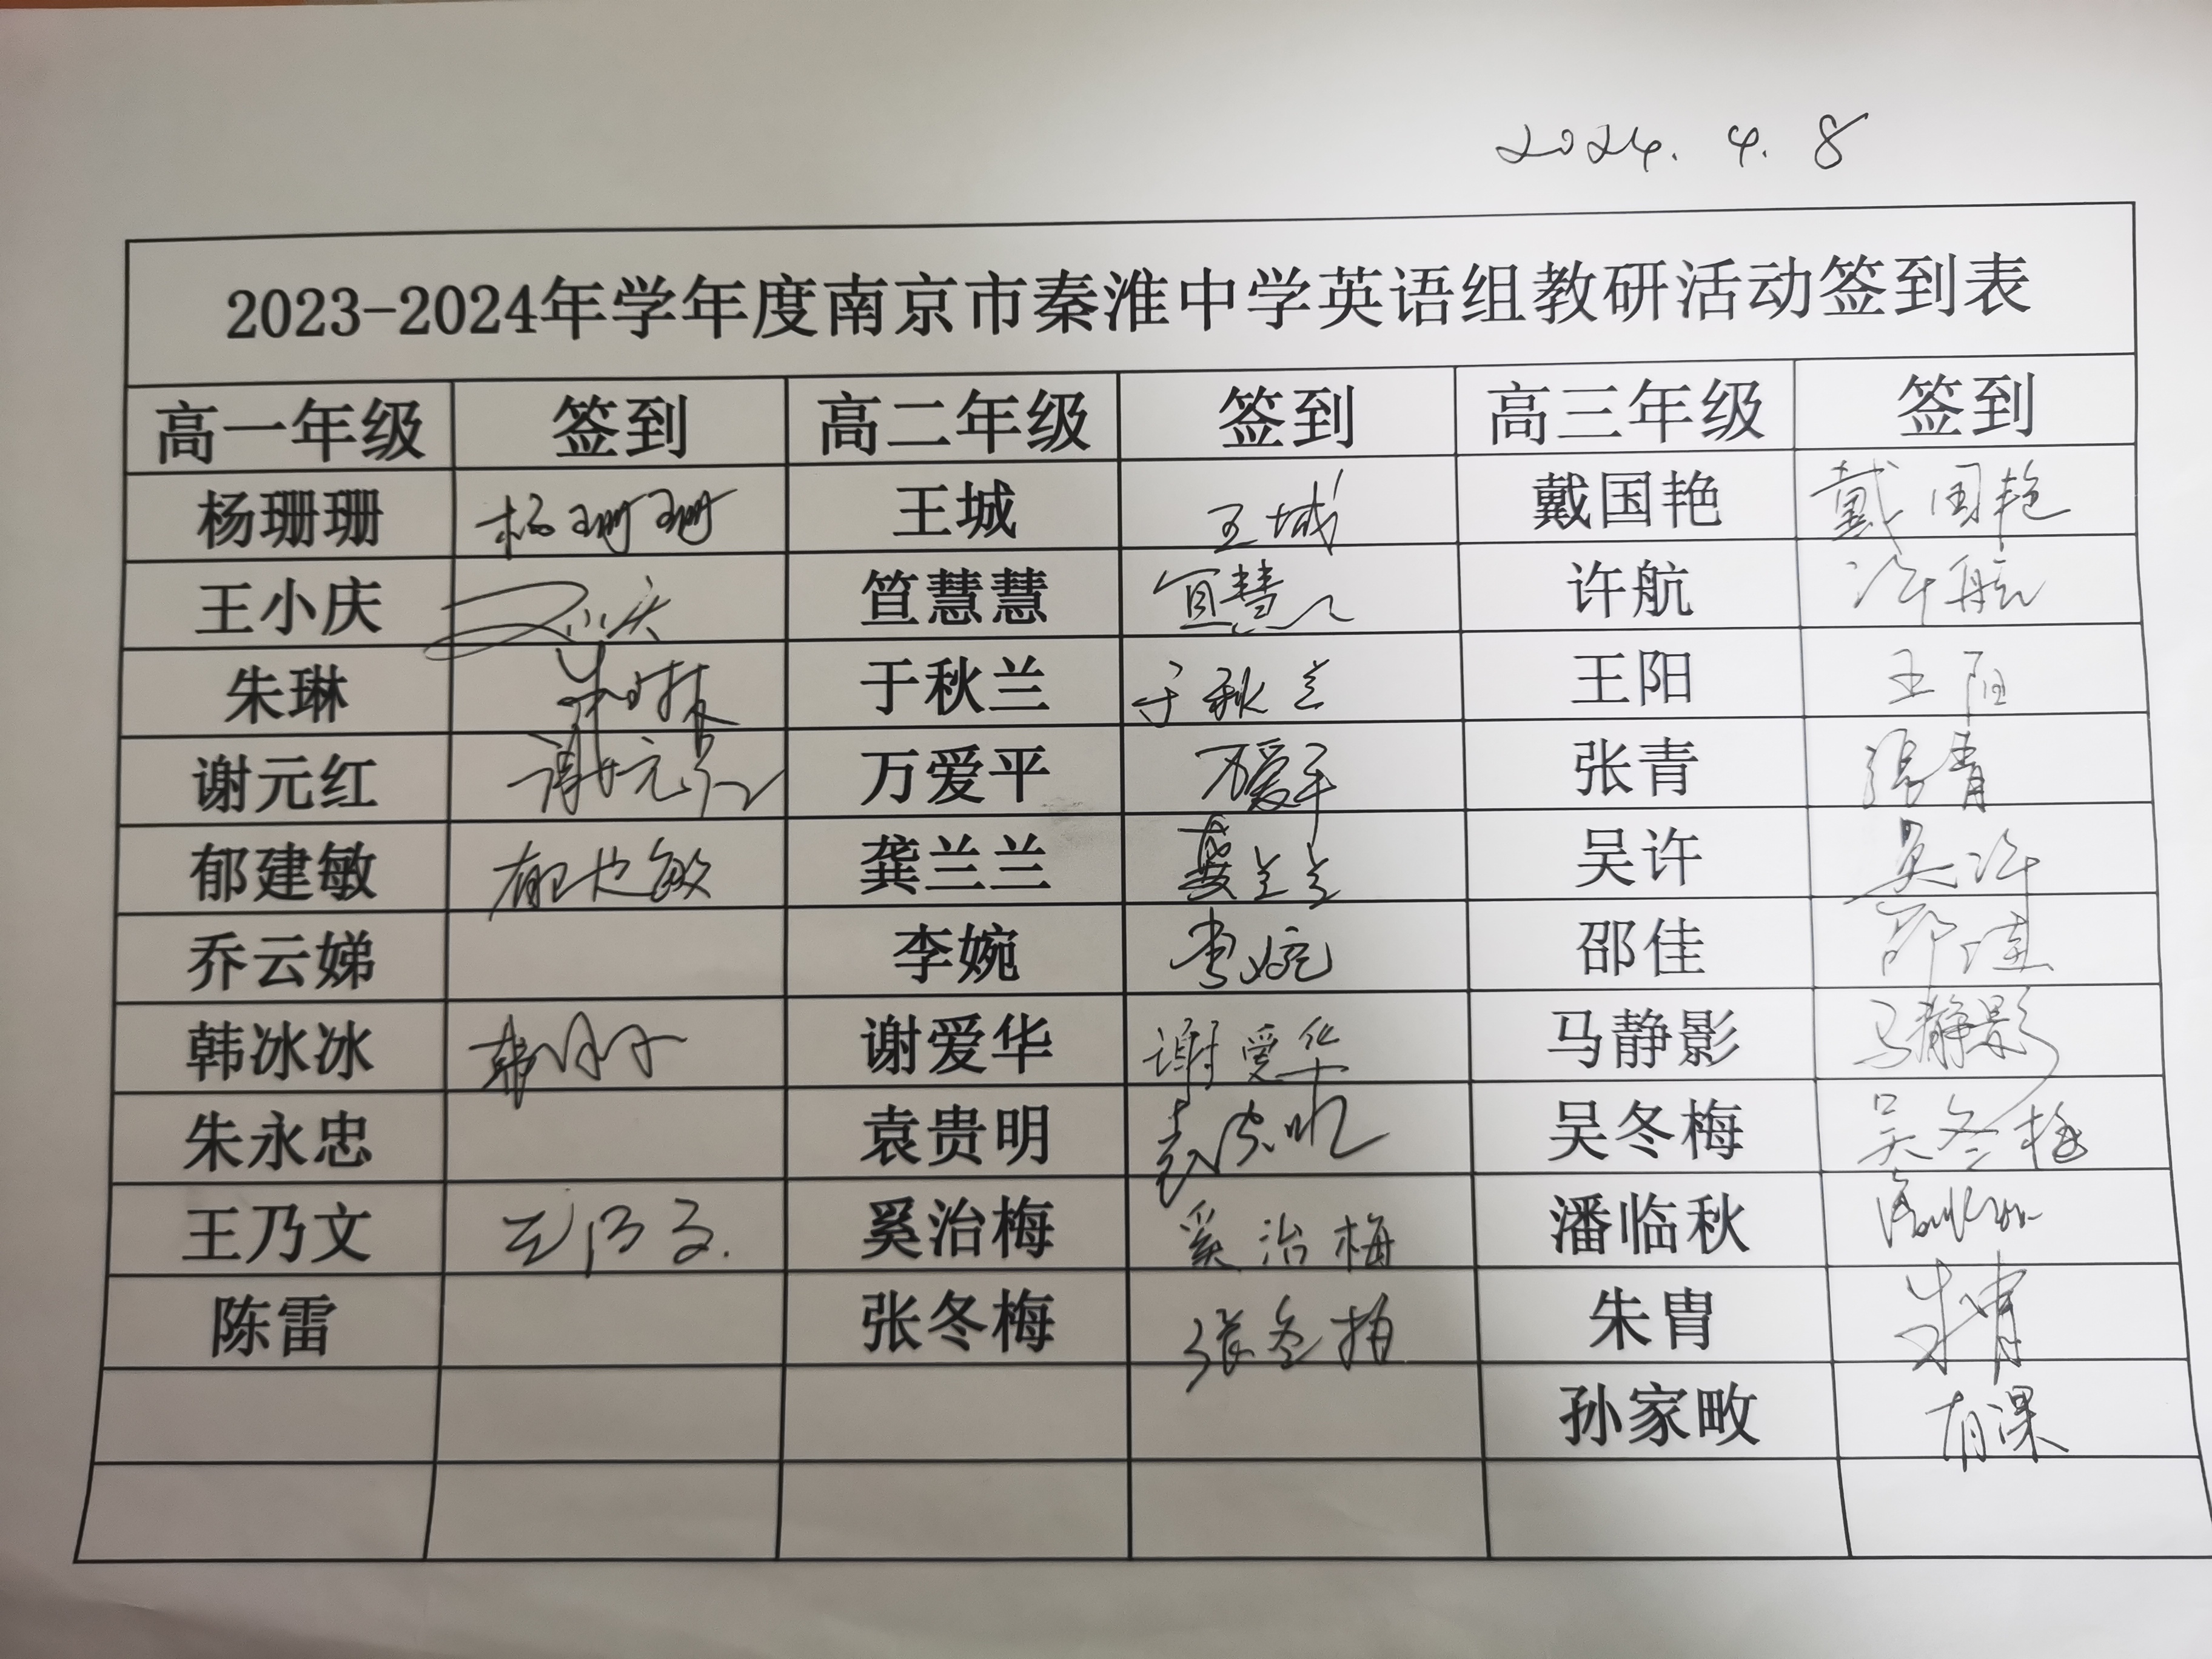 2024.4.8
2023-2024年学年度南京市秦淮中学英语组教研活动签到表
高一年级 签到 高二年级 签到 高三年级 签到
杨珊珊 杨珊珊 王城 王城 戴国艳 戴国艳
王小庆 王小庆 笪慧慧 笪慧慧 许航 许航
朱琳 朱琳 于秋兰 于秋兰 王阳 王阳
谢元红 谢元红 万爱平 万爱平 张青 張青
郁建敏 郁建敏 龚兰兰 龚兰兰 吴许 吴许
乔云娣 李婉 李婉 邵佳 邵佳
韩冰冰 韩冰冰 谢爱华 谢爱华 马静影 马静影
朱永忠 袁贵明 袁贵明 吴冬梅 吴冬梅
王乃文 王乃文 奚治梅 奚治梅 潘临秋 潘临秋
陈雷 张冬梅 张冬梅 朱胄 朱胄
孙家畋 有课